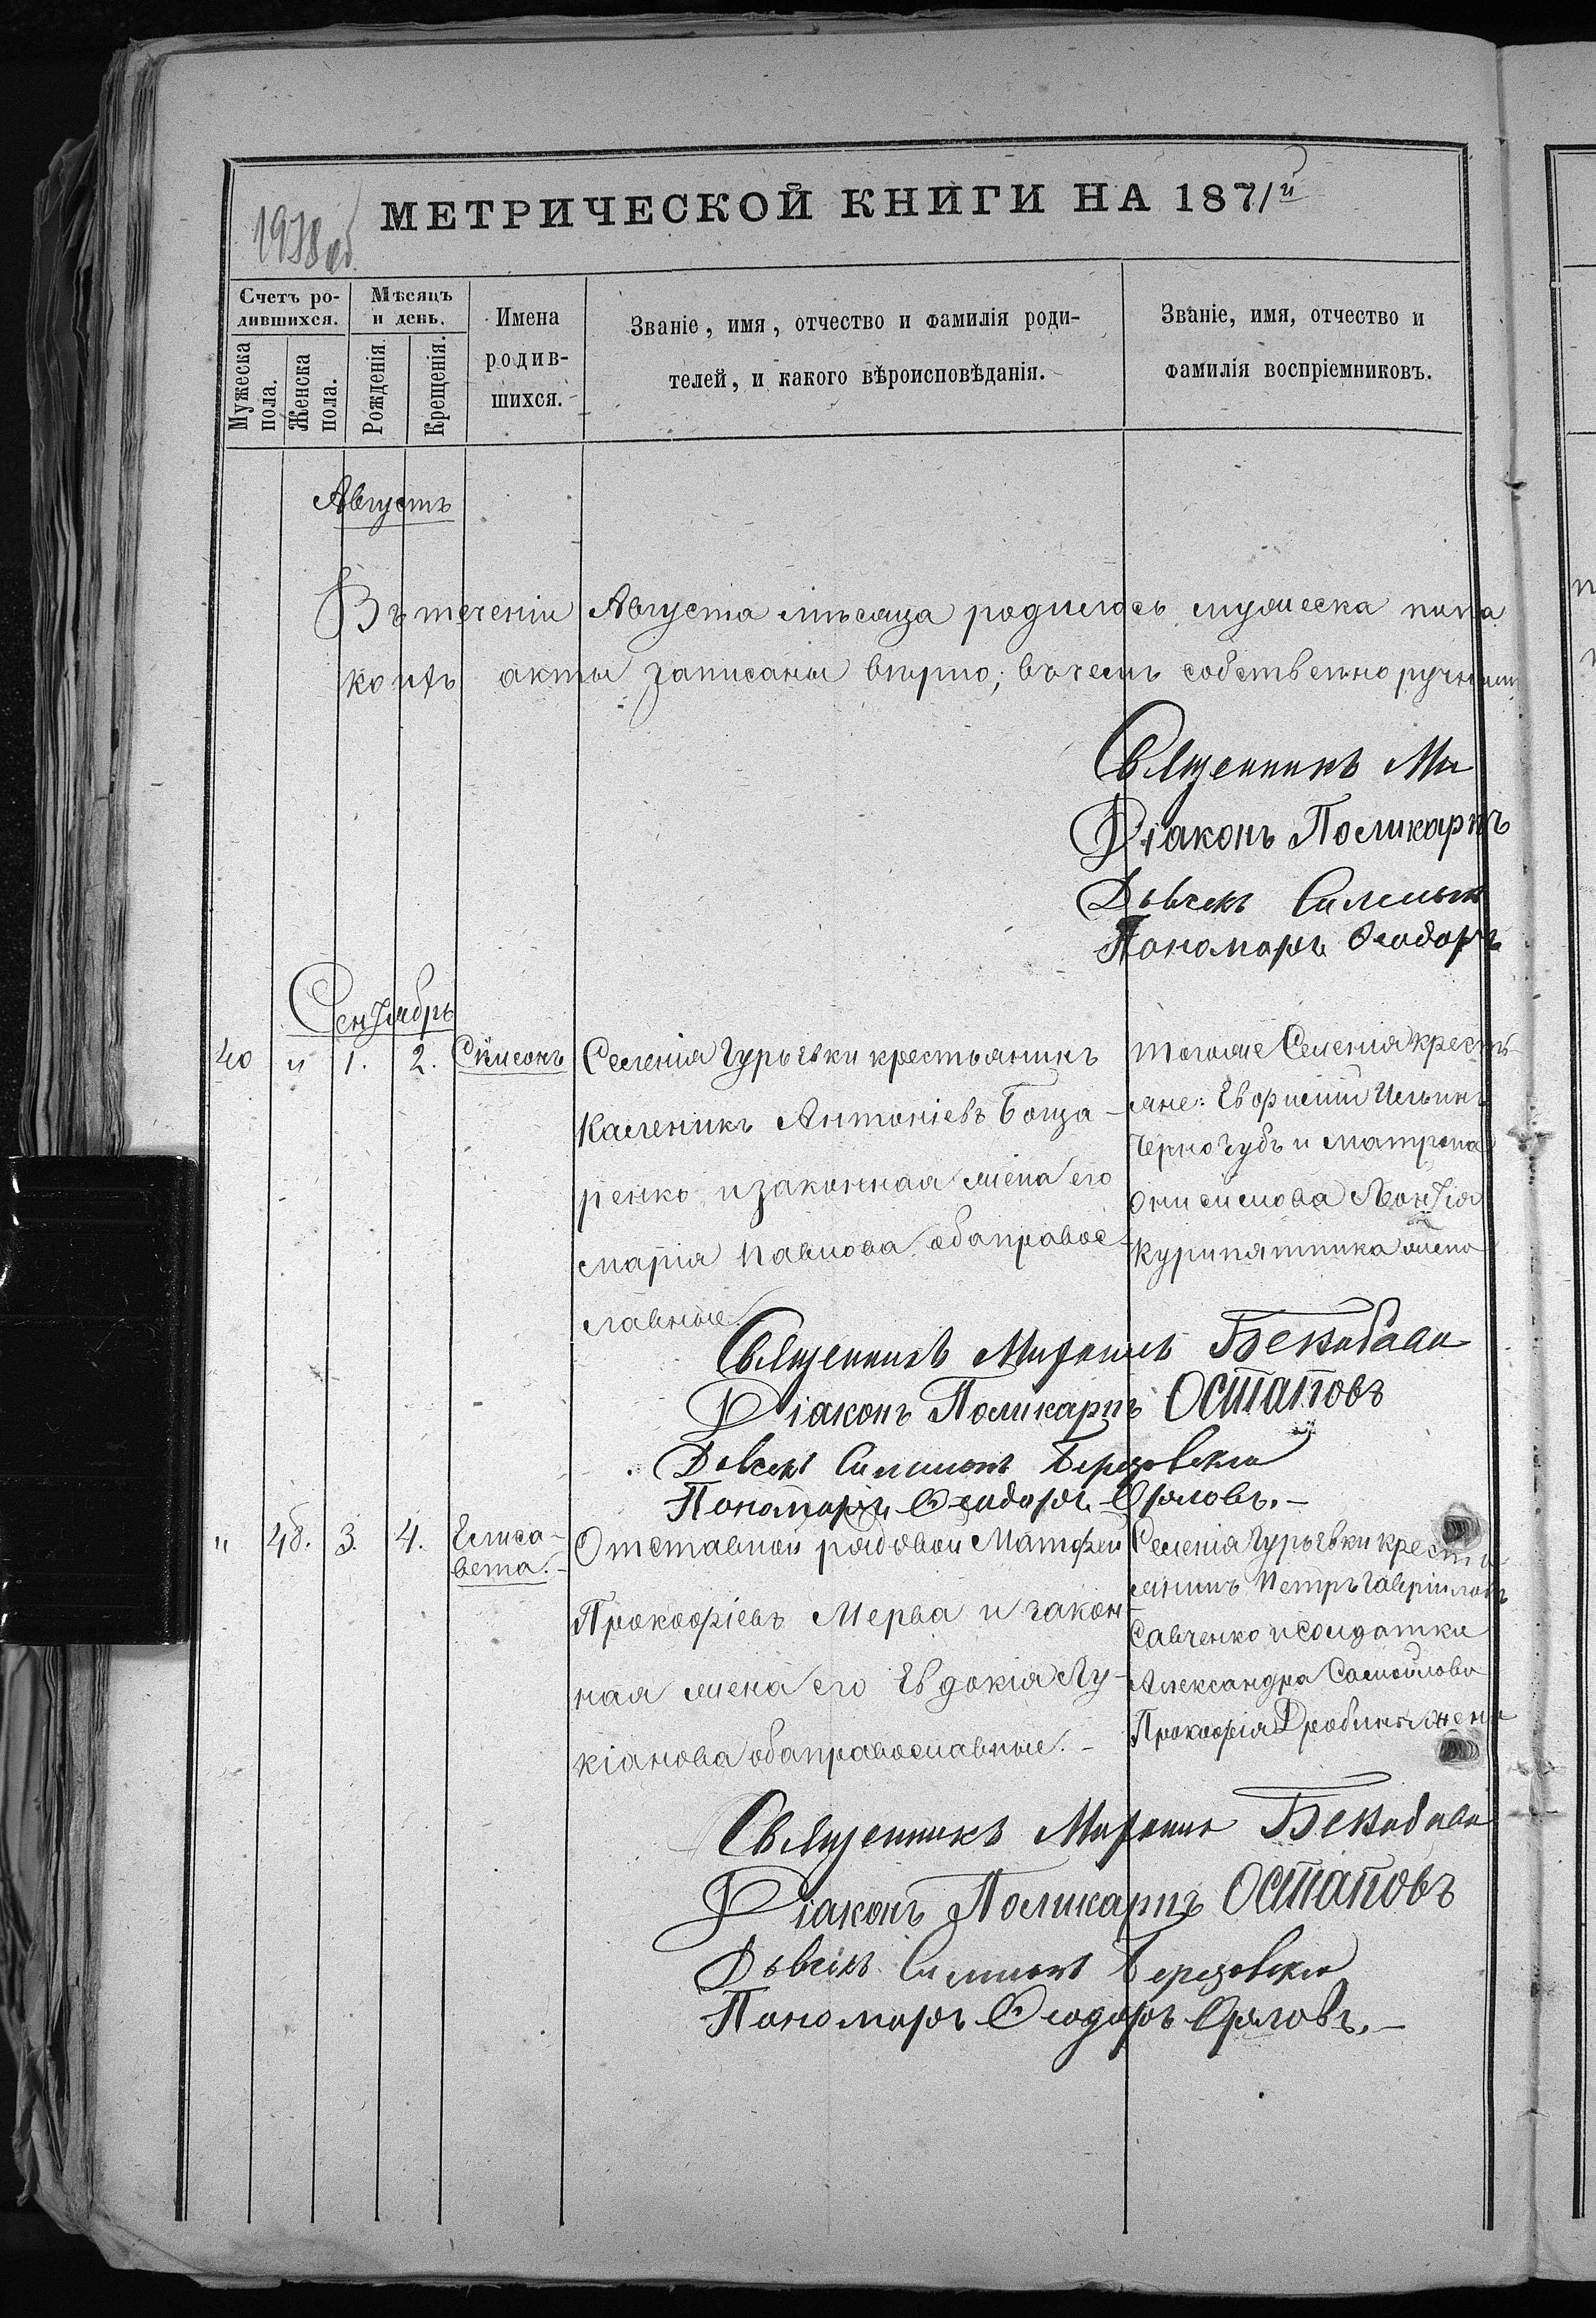 МЕТРИЧЕСКОЙ КНИГИ НА 1871й
1978 об.
Счетъ ро-
дившихся.
Мужеска
пола.
Женска
пола.
Мѣсяцъ
и день.
Рожденія
Крещенія.
Имена
родив-
шихся.
Званіе, имя, отчество и фамилія роди-
телей, и какого вѣроисповѣданія.
Званіе, имя, отчество и
фамилія воспріемниковъ.
Августъ
Въ теченіи Августа мѣсяца родилось мужеска пола
коихъ акты записаны вѣрно; въ чемъ собственноручным
Священникъ Ми
Діаконъ Поликарпъ
Дьячекъ Симеонъ
Пономарь Ѳеодоръ
Сентябрь
40 " 1. 2. Симеонъ
Селенія Гурьевки крестьянинъ
Каленикъ Антоніевъ Бонда-
ренко и законная жена его
Марія Павлова оба православ-
славные.
Тогоже Селенія кресть-
яне: Евфимій Ильинъ
Черночубъ и Матрона
Онисимова Леонтія
Курипятника жена
Священникъ
Діаконъ Поликарпъ Остаповъ
Дьячекъ Симеонъ Березовскій
Пономарь Ѳеодоръ Орловъ.-
" 48. 3. 4. Елиса-
вета.-
Отставной рядовой Матфей
Прокофіевъ Мерва и закон-
ная жена его Евдокія Лу-
кіанова оба православные.-
Селенія Гурьевки крестья
янинъ Петръ Гавріиловъ
Савченко и солдатка
Александра Самойлова
Прокофія Дробина жена
Священникъ
Діаконъ Поликарпъ Остаповъ
Дьячекъ Симеонъ Березовскій
Пономарь Ѳеодоръ Орловъ.-